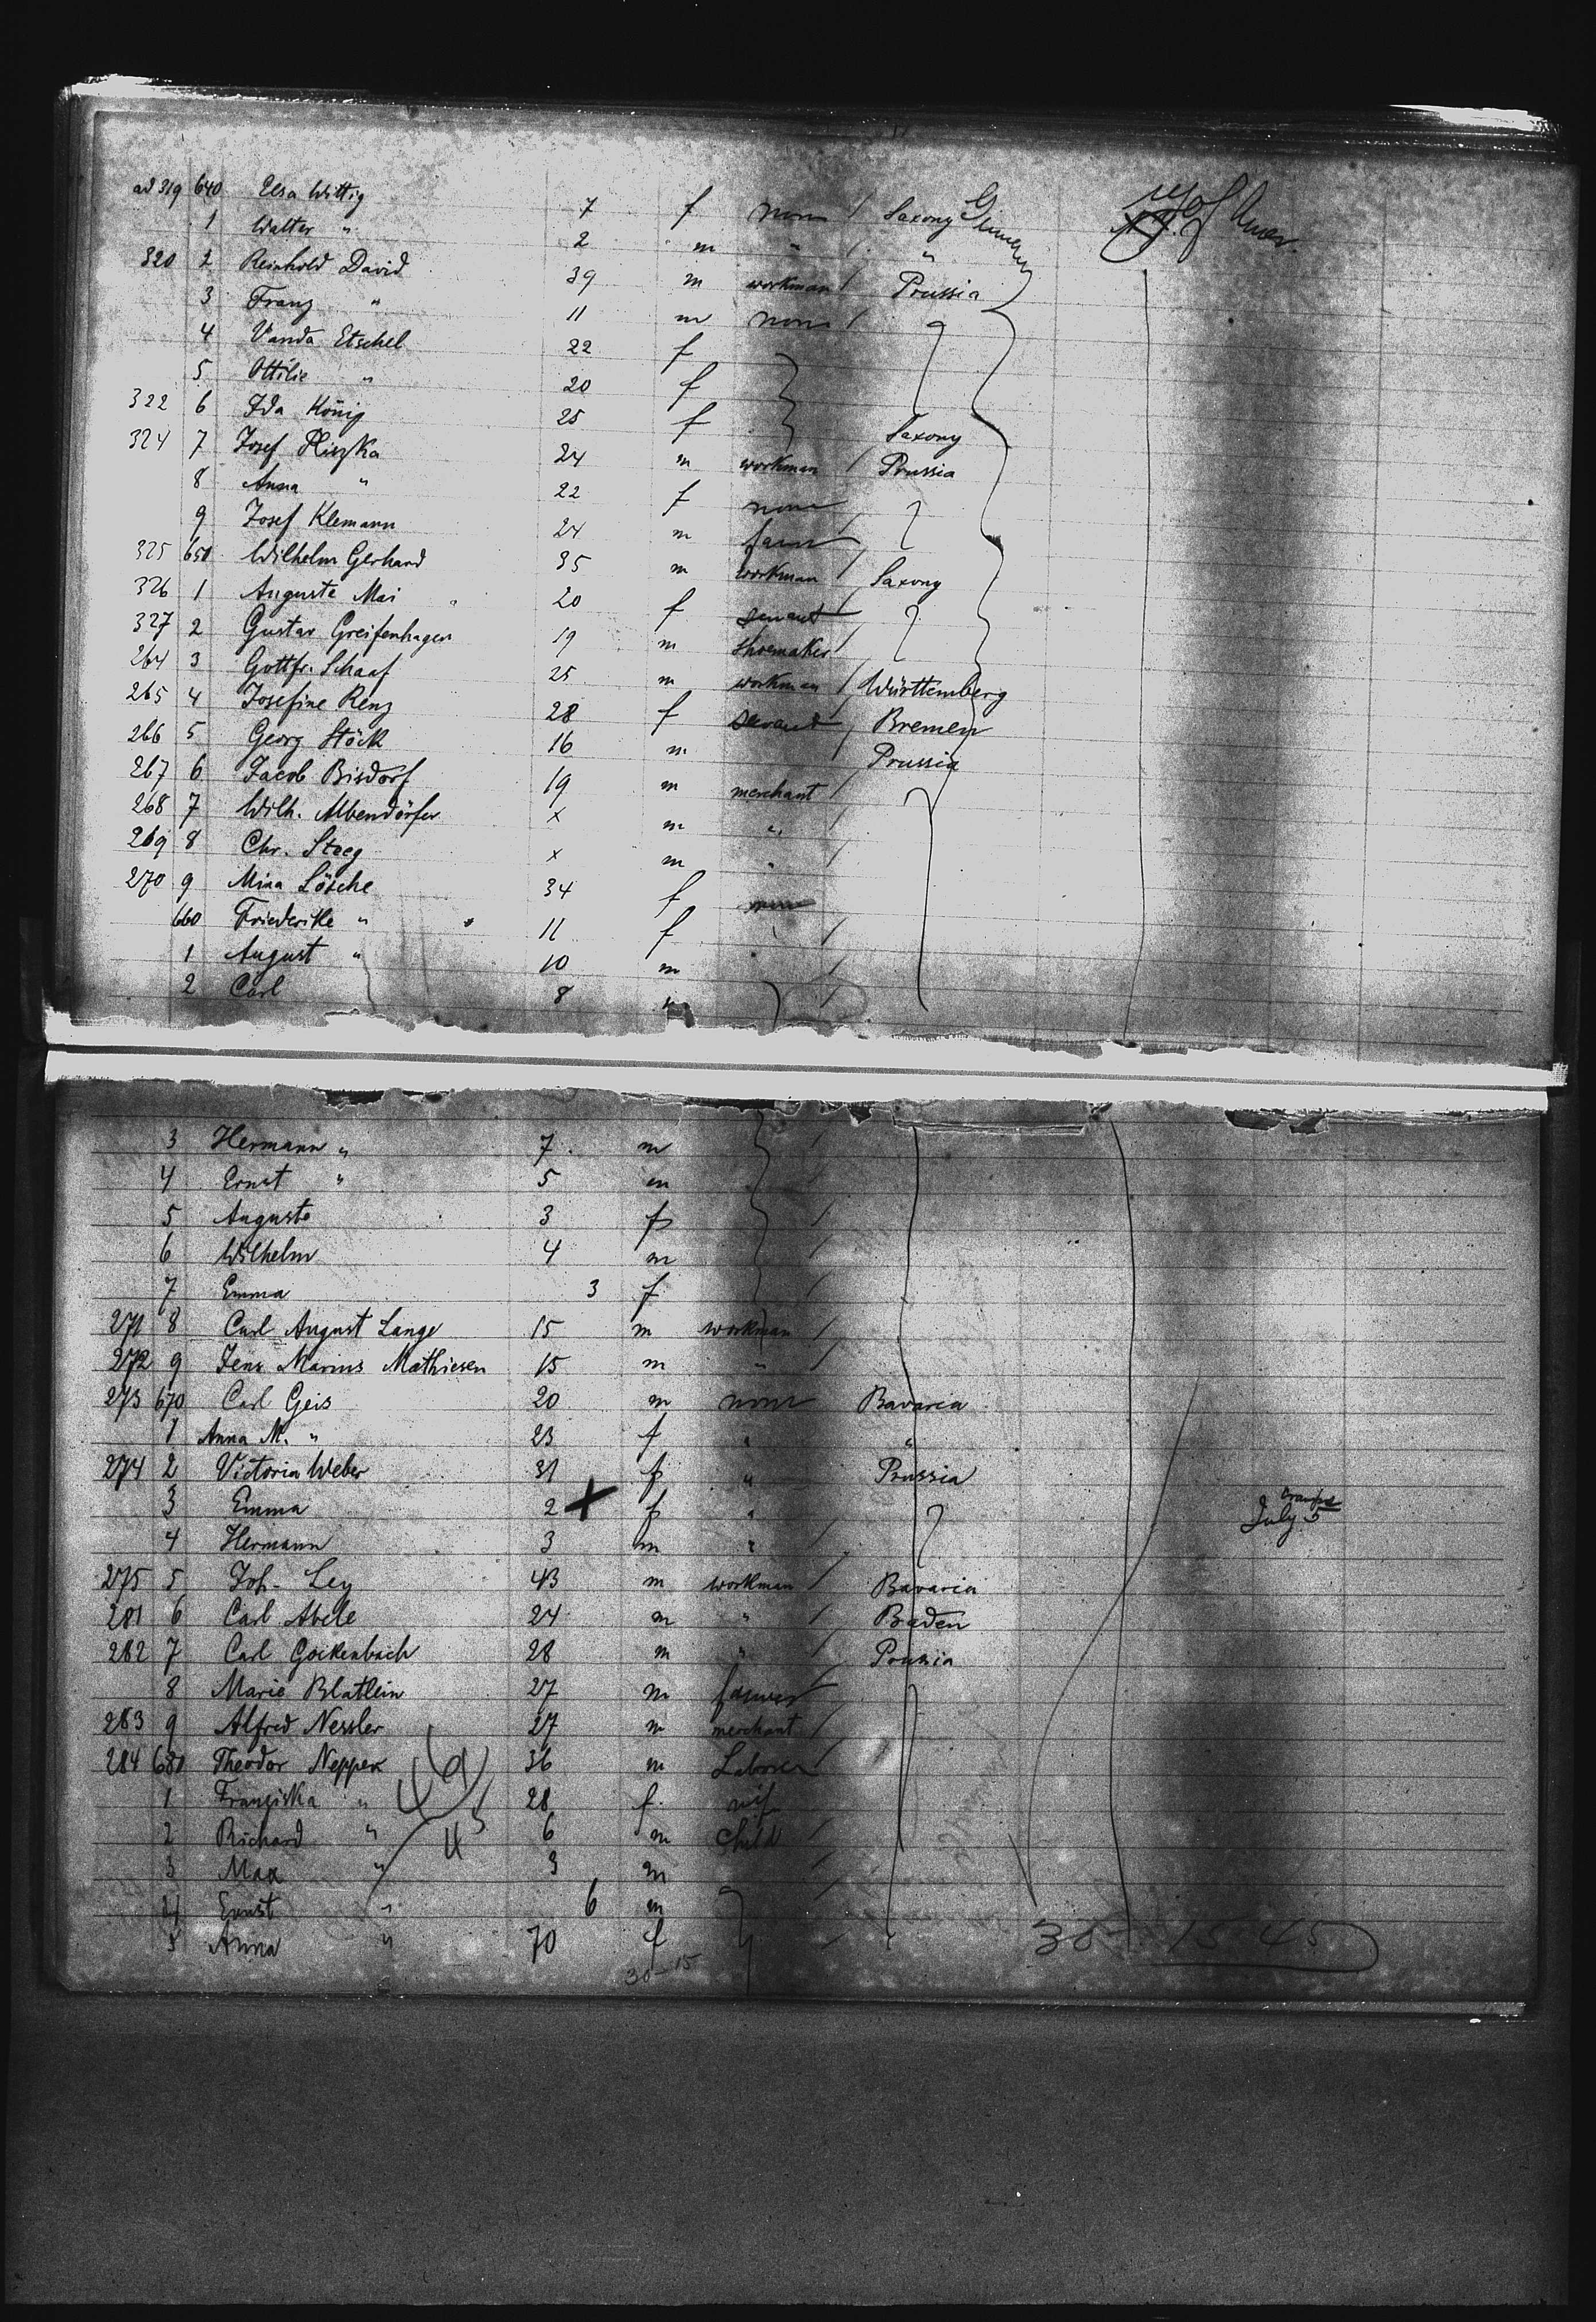 ad 319 640 Elsa Wittig 7 f none / Saxony Germany U S of Amer.
1 Walter " 2 m " / "
320 2 Reinhold David 39 m workman / Prussia
3 Franz " 11 m none /
4 Vanda Etschel 22 f
5 Ottilie " 20 f
322 6 Ida König 25 f Saxony
324 7 Josef Pliszka 24 m workman / Prussia
8 Anna " 22 f none /
9 Josef Klemann 24 m farmer /
325 650 Wilhelm Gerhard 35 m workman / Saxony
326 1 Auguste Mai 20 f servant /
327 2 Gustav Greifenhagen 19 m shoemaker /
264 3 Gottfr. Schaaf 25 m workman / Württemberg
265 4 Josefine Renz 28 f servant / Bremen
266 5 Georg Stöck 16 m Prussia
267 6 Jacob Bisdorf 19 m merchant /
268 7 Wilh. Albendörfer x m " /
269 8 Chr. Steeg x m " /
270 9 Mina Lösche 34 f none
660 Friederike " 11 f /
1 August " 10 m /
2 Carl 8 m /
3 Hermann " 7 m /
4 Ernst " 5 m
5 Auguste 3 f /
6 Wilhelm 4 m /
7 Emma 3 f /
271 8 Carl August Lange 15 m workman /
272 9 Jens Marius Mathiesen 15 m " /
273 670 Carl Geis 20 m none Bavaria
1 Anna M. " 23 f " "
274 2 Victoria Weber 31 f " Prussia
3 Emma 2 x f " July 5
4 Hermann 3 m " /
275 5 Joh. Ley 43 m workman / Bavaria
281 6 Carl Abele 24 m " / Baden
282 7 Carl Gockenbach 28 m " / Prussia
8 Marie Blatlein 27 m farmer /
283 9 Alfred Nessler 27 m merchant /
284 680 Theodor Nepper 36 m Laborer
1 Franziska " 28 f wife
2 Richard " 6 m child /
3 Max " 3 m /
4 Ernst " 6 m
5 Anna " 70 f / 30 - 15 45
30 - 15